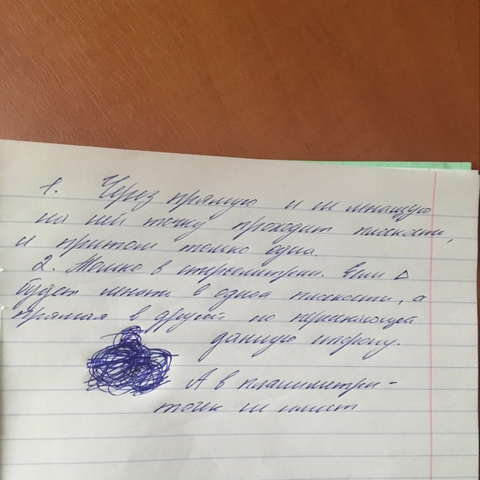 1. Через прямую и не лежащую
на ней точку проходит плоскость,
и притом только одна.
2. Только в стереометрии. Если △
будет лежать в одной плоскости, а
прямая в другой не пересекающей
данную сторону.
А в планиметри-
точк не имеет